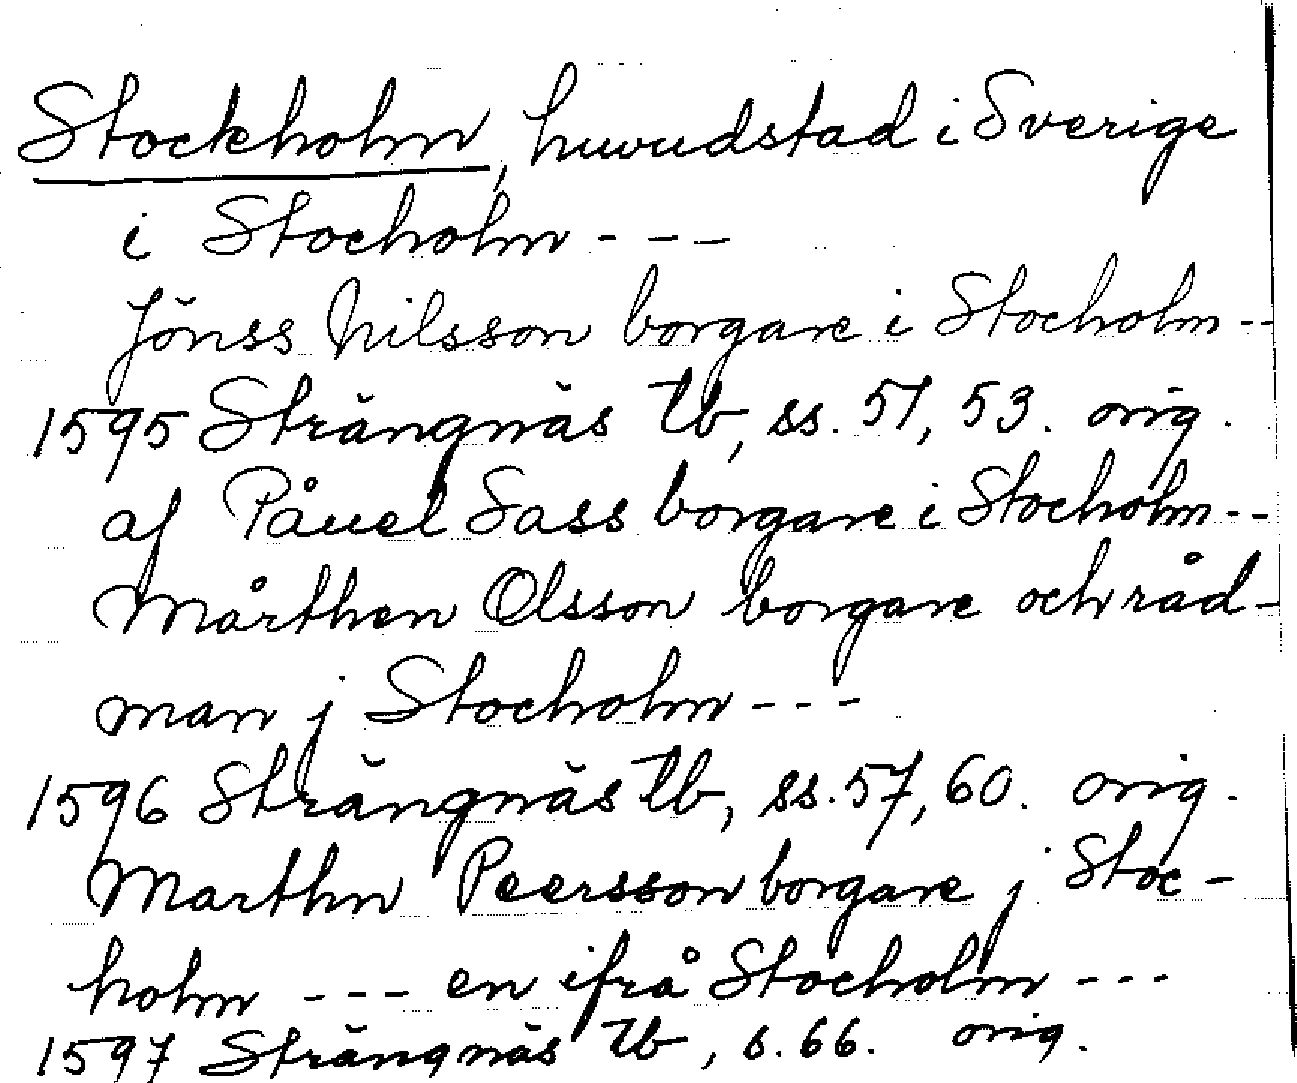 Stockholm, huvudstad i Sverige
i Stocholm - - -
Jönss Nilsson borgare i Stocholm - -
1595 Strängnäs tb, ss. 51, 53. orig.
af Påuel Sass borgare i Stocholm - -
Mårthen Olsson borgare och råd-
man j Stocholm - - -
1596 Strängnäs tb, ss. 57, 60. orig.
Marthn Peersson borgare j Stoc-
holm - - - en ifrå Stocholm - - -
1597 Strängnäs tb, s. 66. orig.